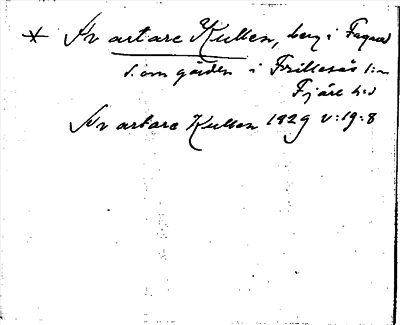 * Svartare Kullen, berg i Fagred
S. om gården i Frillesås s:n
Fjäre h:d
Svartare Kullen 1829 V:19:8